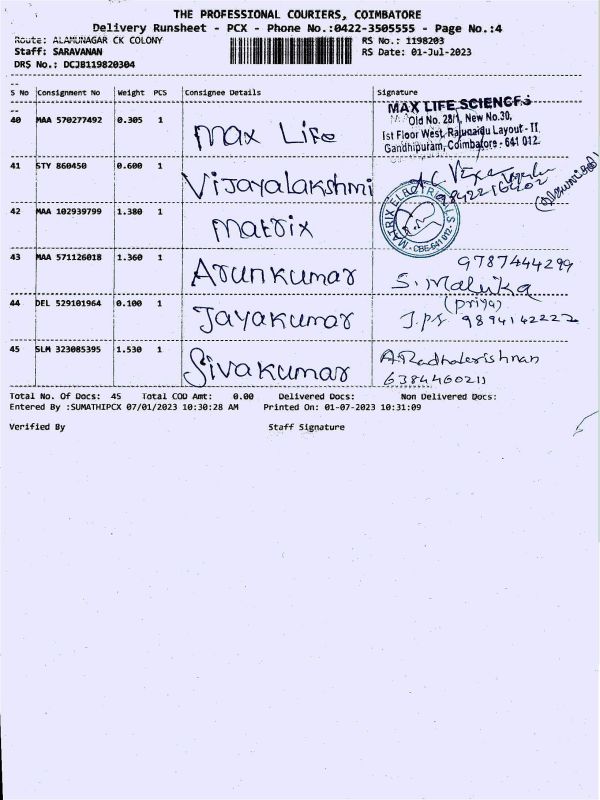 THE PROFESSIONAL COURIERS, COIMBATORE
Delivery Runsheet - PCX - Phone No.:0422-3505555 - Page No.:4
Route: ALAMUNAGAR CK COLONY RS No.: 1198203
Staff: SARAVANAN RS Date: 01-Jul-2023
DRS No.: DCJB119820304
S No Consignment No Weight PCS Consignee Details Signature
40 MAA 570277492 0.305 1 Max Life
MAX LIFE SCIENCES
Old No. 28/1, New No.30,
Ist Floor West, Rajunaidu Layout - II
Gandhipuram, Coimbatore - 641 012.
41 STY 860450 0.600 1 Vijayalakshmi
9842216402
42 MAA 102939799 1.380 1 Matrix
MATRIX ELECTRICALS
CBE-641 012
43 MAA 571126018 1.360 1 Arunkumar
9787444299
S. Malika
(Priya)
44 DEL 529101964 0.100 1 Jayakumar J.P.S 9894142222
45 SLM 323085395 1.530 1 Sivakumar
A. Radhakrishnan
6384460211
Total No. Of Docs: 45 Total COD Amt: 0.00 Delivered Docs: Non Delivered Docs:
Entered By :SUMATHIPCX 07/01/2023 10:30:28 AM Printed On: 01-07-2023 10:31:09
Verified By Staff Signature